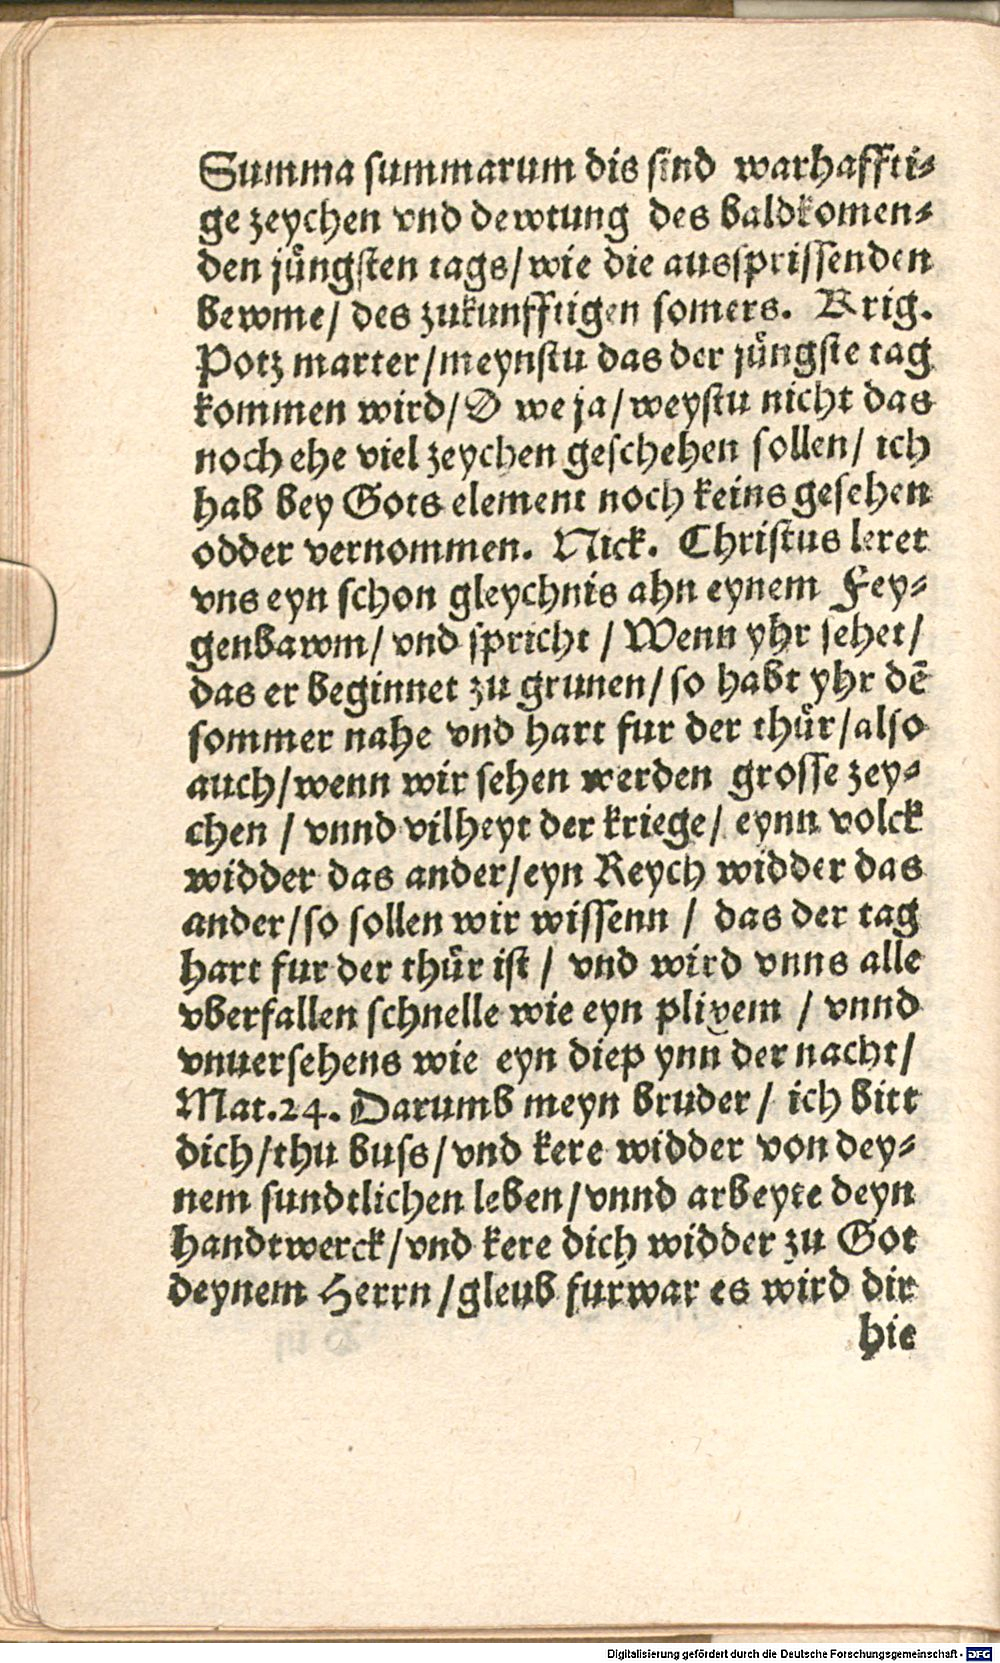 Summa summarum dis sind warhaffti⸗
ge zeychen vnd dewtung des baldkomen⸗
den jüngsten tags/wie die aussprissenden
bewme/ des zukunfftigen somers. Krig.
Potz marter/meynstu das der jüngste tag
kommen wird/O we ja/weystu nicht das
noch ehe viel zeychen geschehen sollen/ ich
hab bey Gots element noch keins gesehen
odder vernommen. Nick. Christus leret
vns eyn schon gleychnis ahn eynem Fey⸗
genbawm/ vnd spricht / Wenn yhr sehet/
das er beginnet zu grunen/so habt yhr dē
sommer nahe vnd hart fur der thür/also
auch/wenn wir sehen werden grosse zey⸗
chen / vnnd vilheyt der kriege/ eynn volck
widder das ander/eyn Reych widder das
ander/so sollen wir wissenn / das der tag
hart fur der thür ist / vnd wird vnns alle
vberfallen schnelle wie eyn plixem / vnnd
vnuersehens wie eyn diep ynn der nacht/
Mat.24. Darumb meyn bruder/ ich bitt
dich/thu buss/vnd kere widder von dey⸗
nem sundtlichen leben/vnnd arbeyte deyn
handtwerck/vnd kere dich widder zu Got
deynem Herrn/gleub furwar es wird dir
hie
Digitalisierung gefördert durch die Deutsche Forschungsgemeinschaft - DFG